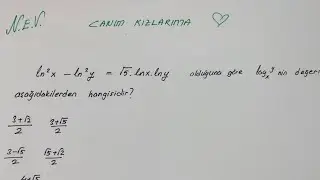 N.E.V. CANIM KIZLARIMA ♡
ln²x - ln²y = √5 . lnx . lny olduğuna göre logₓy nin değeri
aşağıdakilerden hangisidir?
3+√2/2 3+√5/2
3-√5/2 √5+√2/2